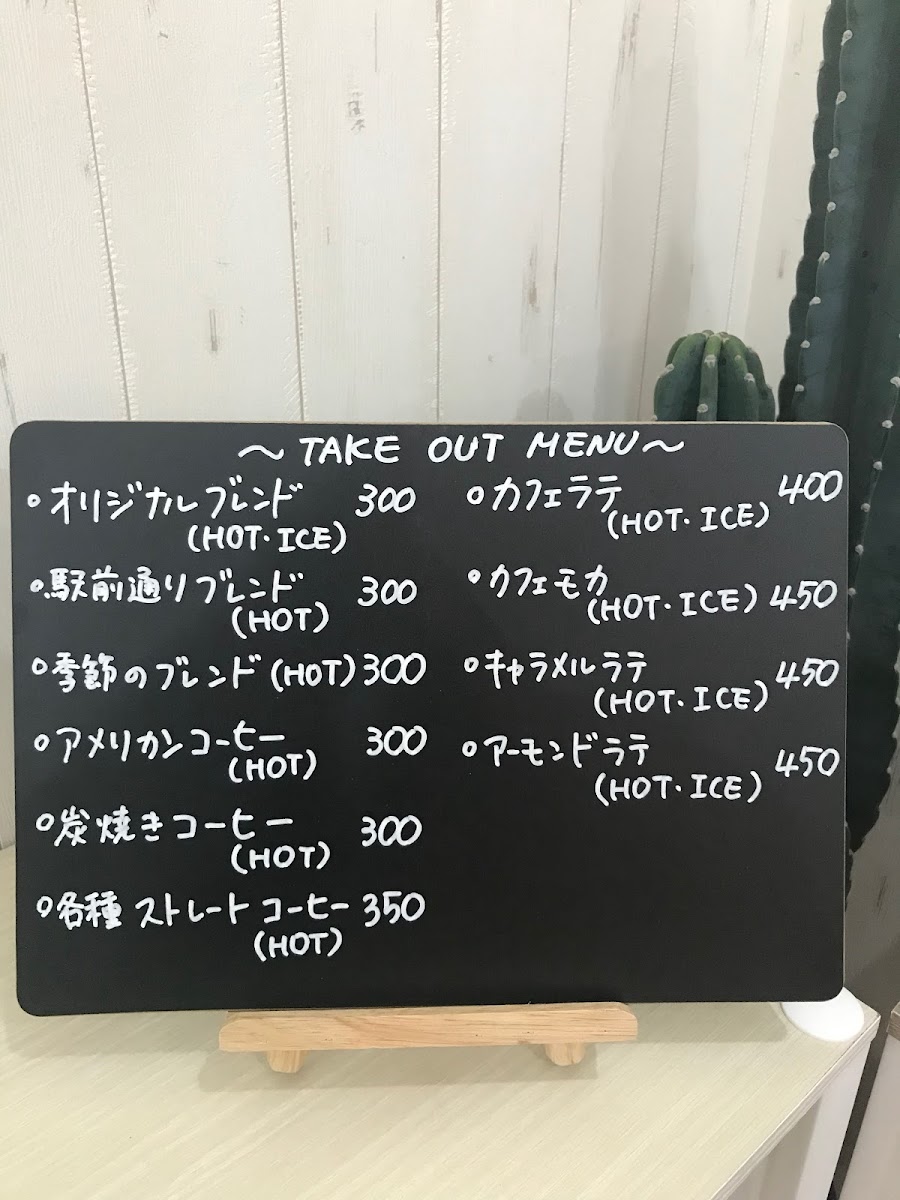 ～ TAKE OUT MENU ～
○オリジナルブレンド 300
(HOT・ICE)
○駅前通りブレンド 300
(HOT)
○季節のブレンド (HOT) 300
○アメリカンコーヒー 300
(HOT)
○炭焼きコーヒー 300
(HOT)
○各種 ストレートコーヒー 350
(HOT)
○カフェラテ 400
(HOT・ICE)
○カフェモカ
(HOT・ICE) 450
○キャラメルラテ 450
(HOT・ICE)
○アーモンドラテ 450
(HOT・ICE)